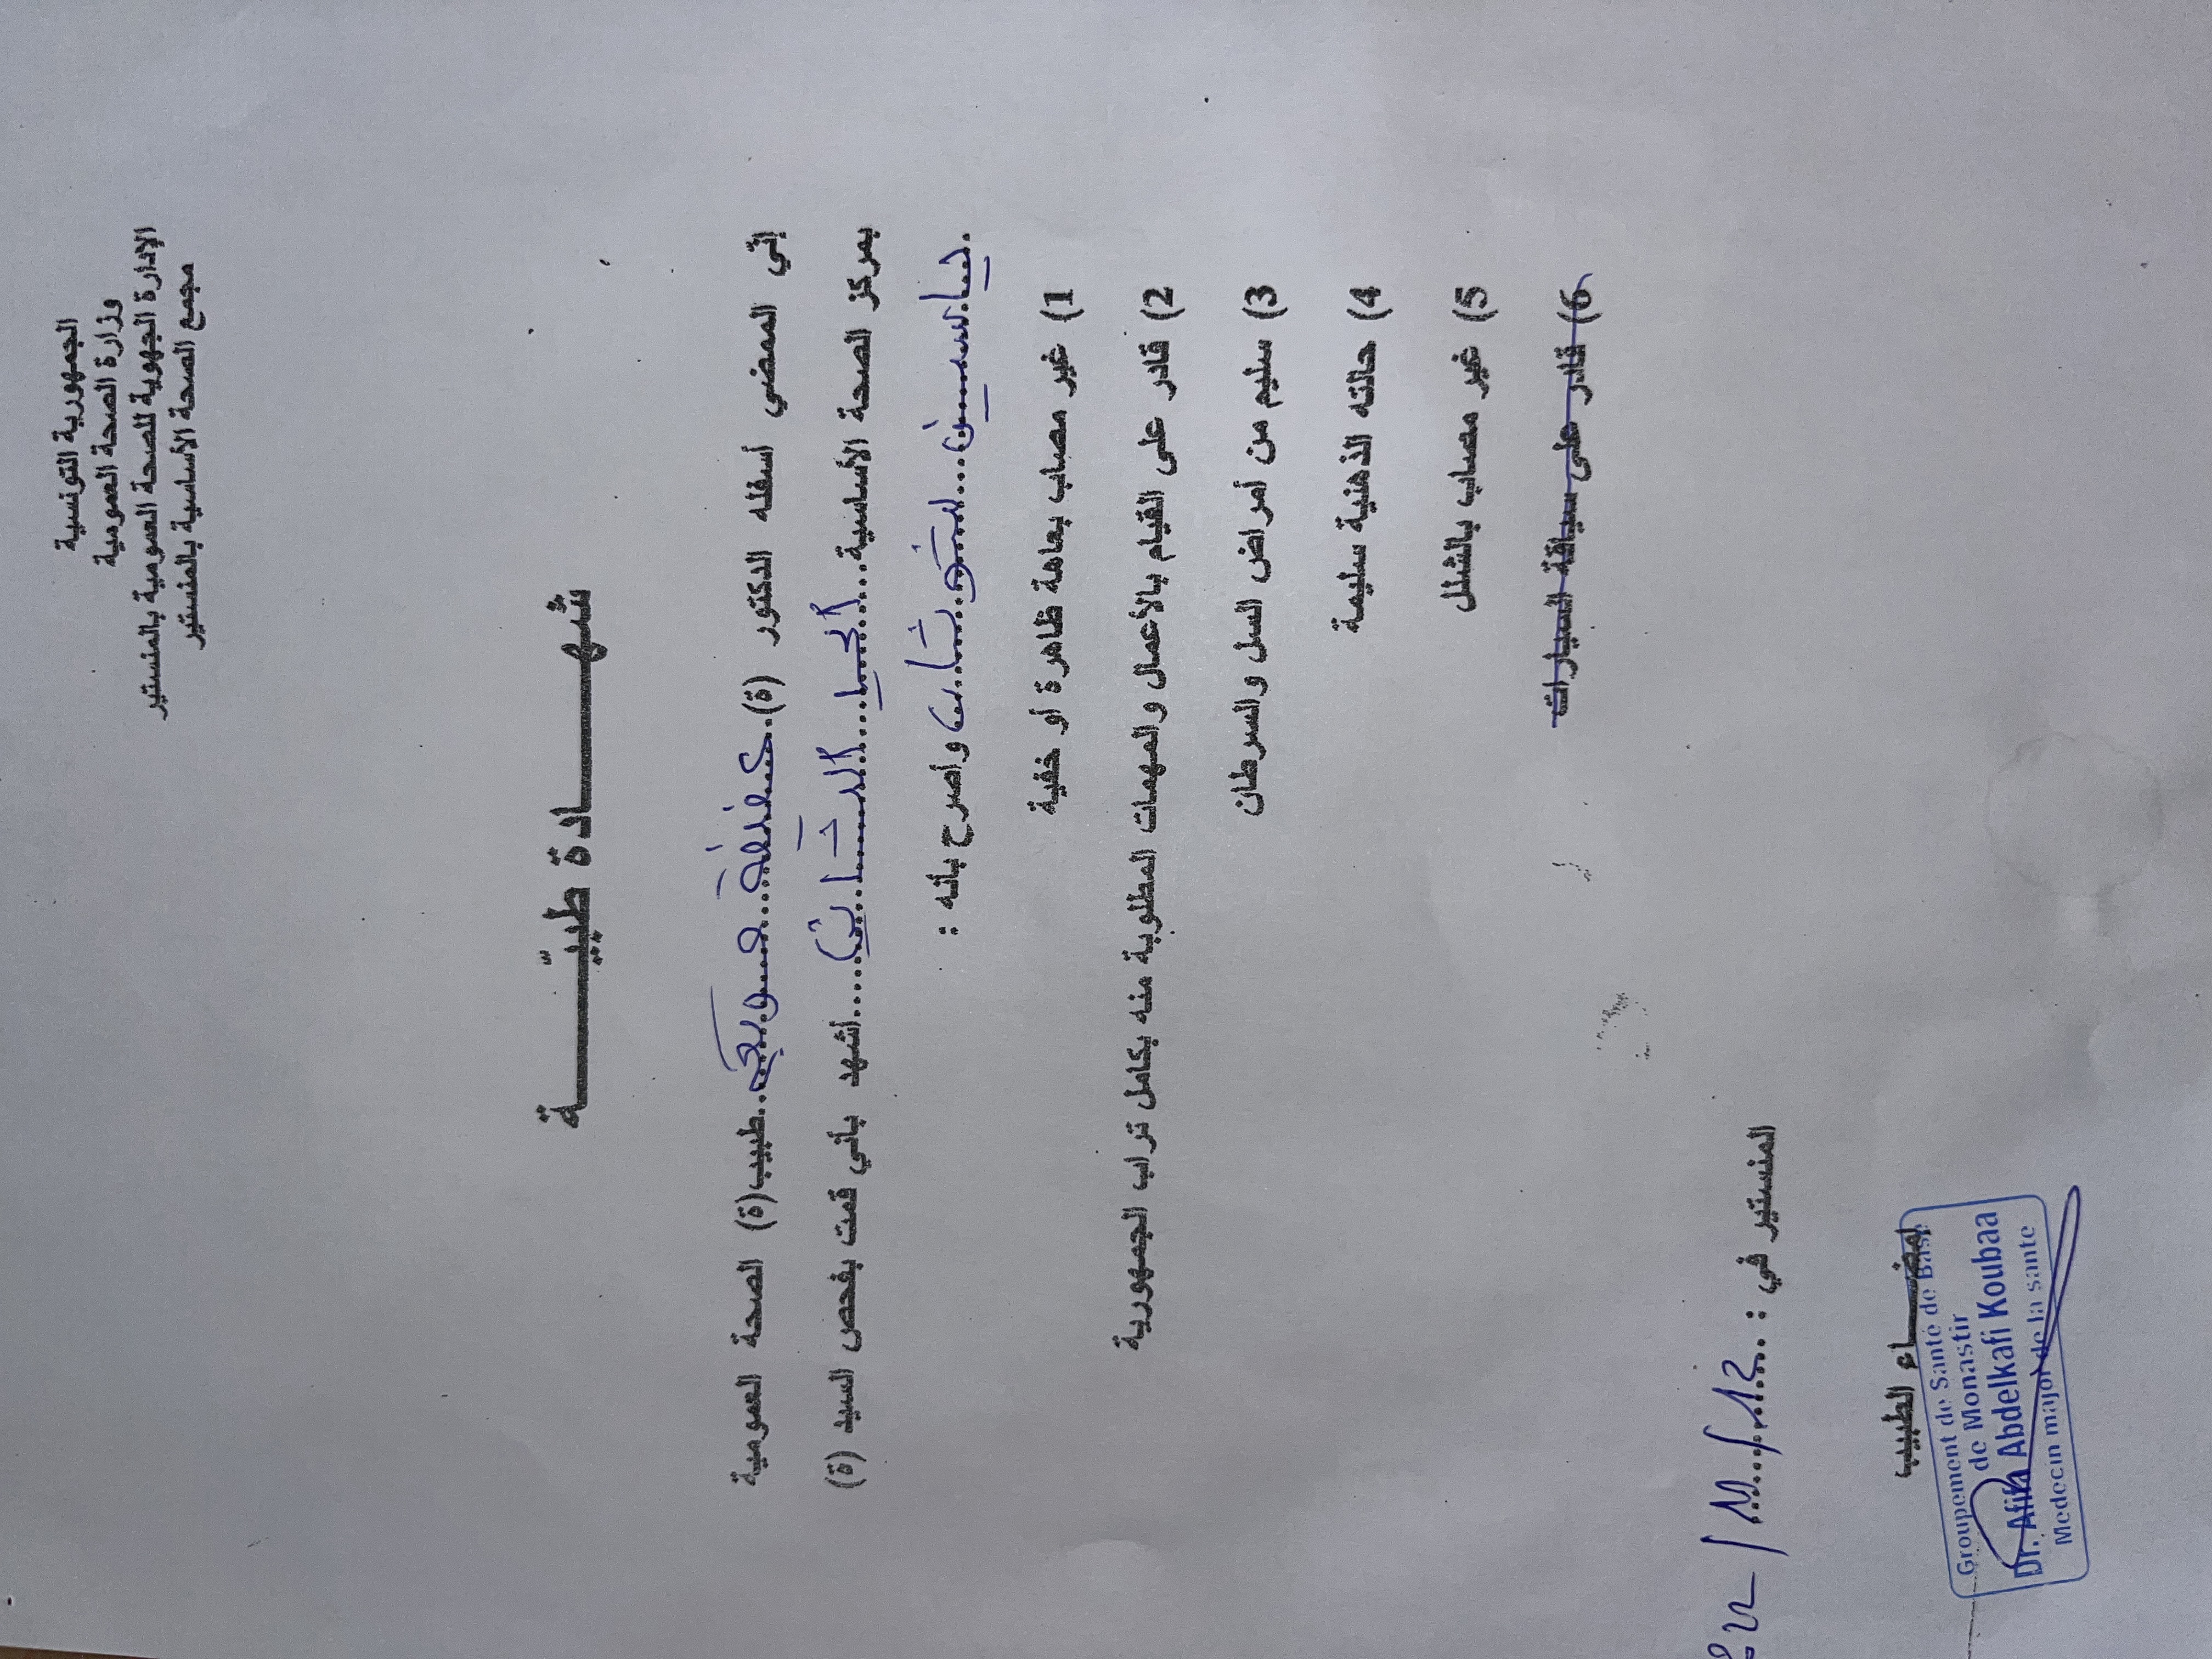 الجمهورية التونسية
وزارة الصحة العمومية
الإدارة الجهوية للصحة العمومية بالمنستير
مجمع الصحة الأساسية بالمنستير
شهـــــــادة طبيّـــــــة
إنّي الممضي أسفله الدكتور (ة). عفيفة ..طبيب(ة) الصحة العمومية
بمركز الصحة الأساسية... .....أشهد بأني قمت بفحص السيد (ة)
ياسين... وأصرح بأنه :
1) غير مصاب بعاهة ظاهرة أو خفية
2) قادر على القيام بالأعمال والمهمات المطلوبة منه بكامل تراب الجمهورية
3) سليم من أمراض السل والسرطان
4) حالته الذهنية سليمة
5) غير مصاب بالشلل
6) قادر على سياقة السيارات
المنستير في : ...
إمضـــاء الطبيب
Groupement de Santé de Base
de Monastir
Dr. Afifa Abdelkafi Koubaa
Medecin major de la sante